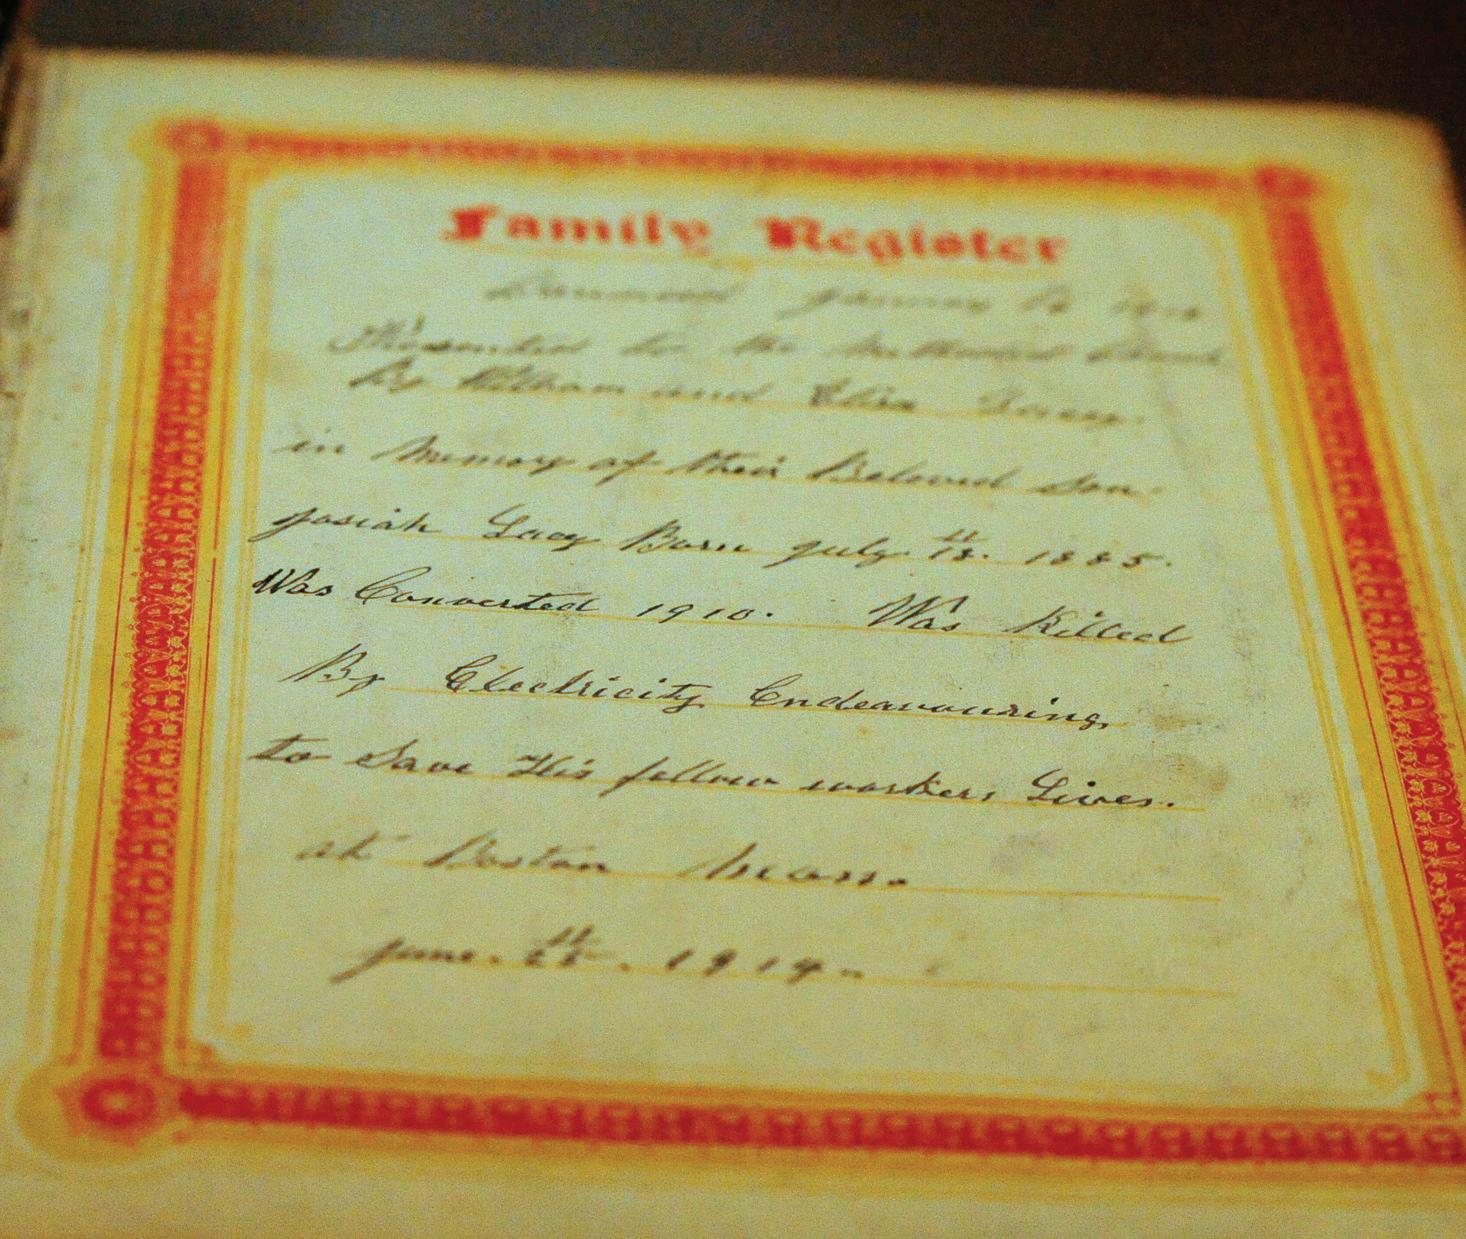 Family Register
January
Presented to the Methodist Church
By William and Eliza Lacey.
in Memory of their Beloved Son.
Josiah Lacy Born July 18th. 1885.
Was Converted 1910. Was Killed
By Electricity Endeavouring,
to Save His fellow workers Lives.
at Boston Mass.
June. 1914.